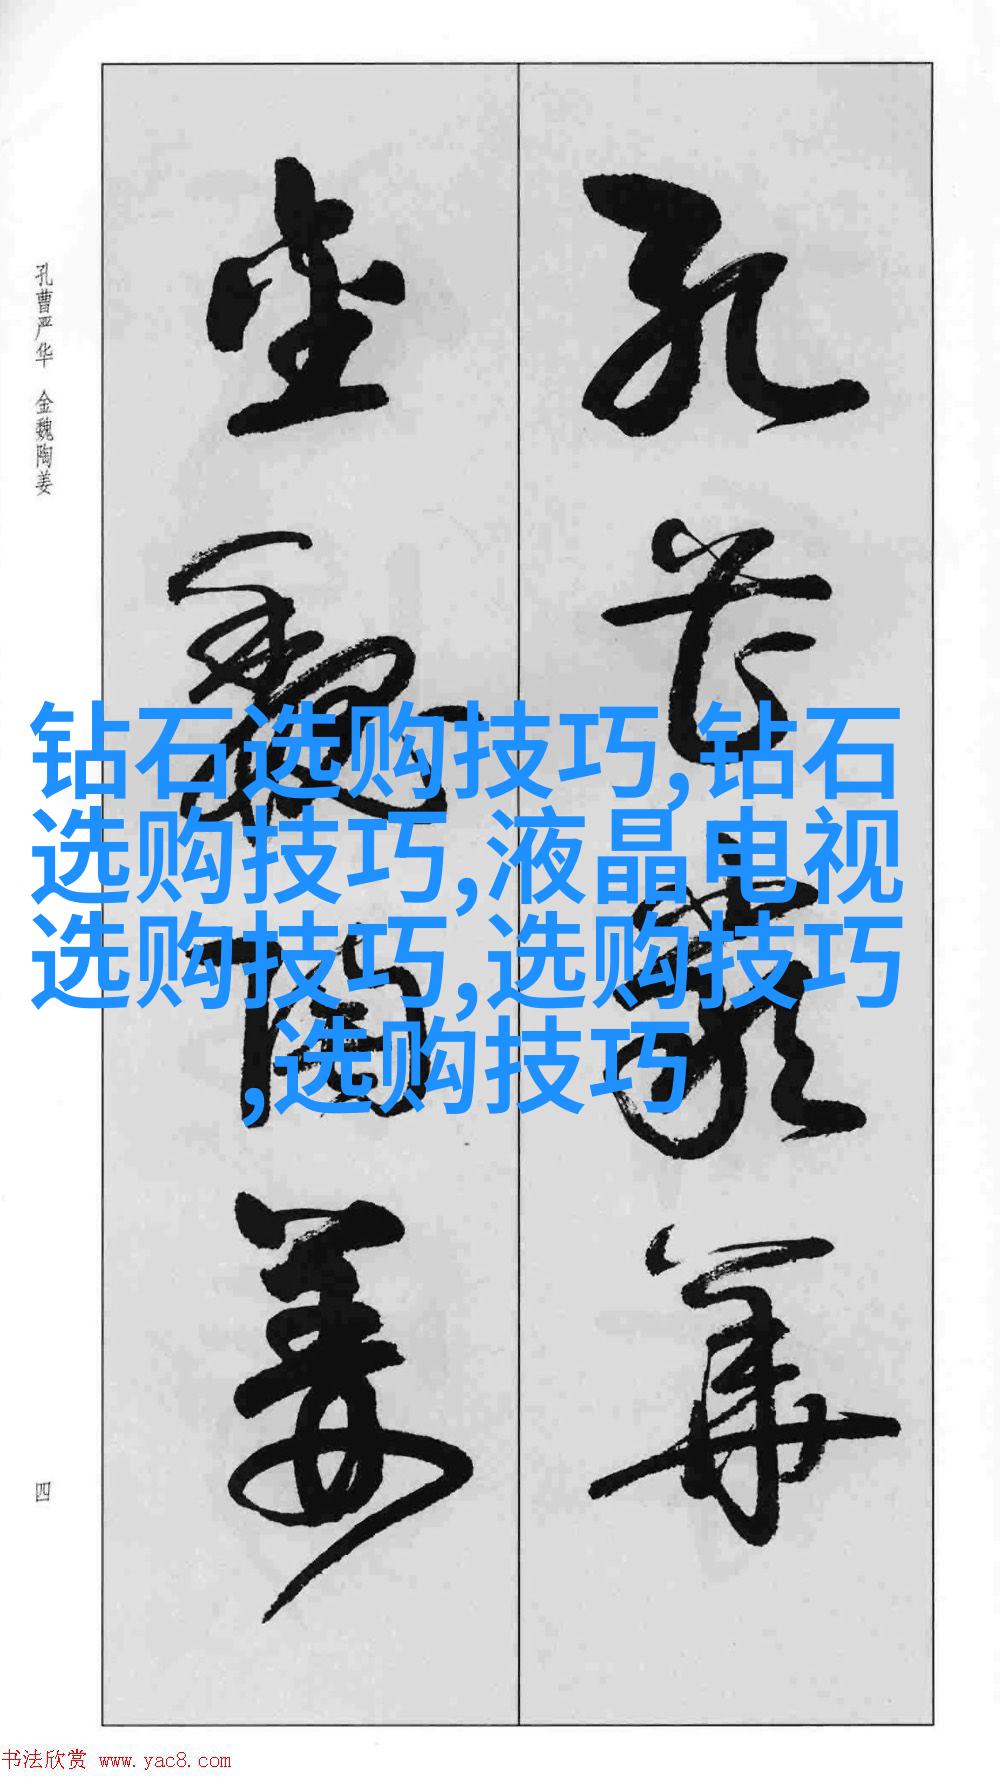 孔曹严华
金魏陶姜
孔曹严华 金魏陶姜
四
钻石选购技巧,钻石
选购技巧,液晶电视
选购技巧,选购技巧
,选购技巧
书法欣赏 www.yac8.com